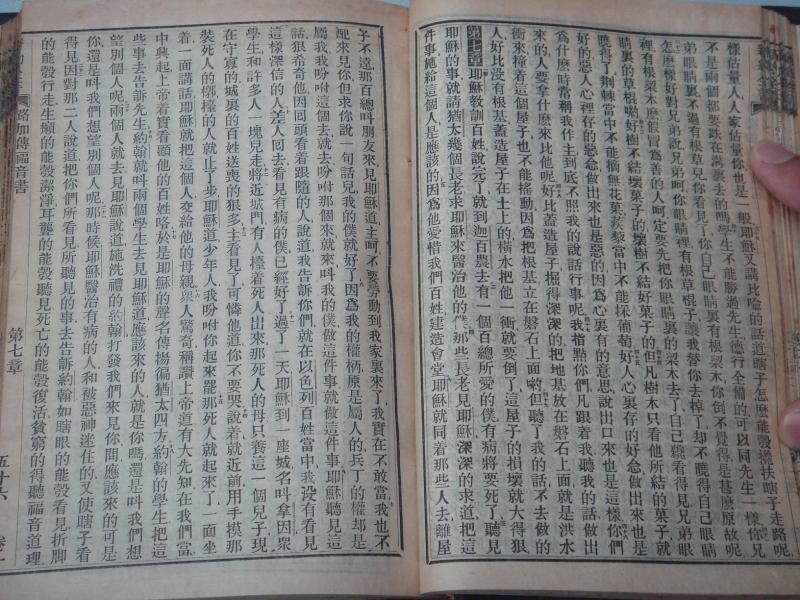 樣估量人人家估量你也是一般耶穌又講比喻的話道瞎子怎麼能彀攙扶瞎子走路呢
不是兩個人都要跌在溝裏去的嗎學生不能勝過先生德行全備的可以同先生一樣你兄
弟眼睛裏不過有根草兒你看見了你自己眼睛裏有根大梁木你倒不覺得是甚麼原故呢
怎麼樣好對兄弟說兄弟呵你眼睛裡有根草棍子讓我替你去掉了却不曉得自己眼睛
裡有根梁木麼假冒爲善的人呵定要先把你眼睛裏的梁木去了自己纔看得見兄弟眼
睛裏的草棍喲好樹不結壞菓子的壞樹不結好菓子的但凡樹木只看他所結的菓子就
曉得了荆棘當中不能摘無花菓蒺藜當中不能採葡萄好人心裏存的好念做出來也是
好的惡人心裡存的惡念做出來也是惡的因爲心裏有的意思說出口來也是這樣你們
爲什麼時常稱我作主到底不照我的說話行事呢我指點你們凡跟着我聽我的話做出
來的人要拿什麼來比他呢好比蓋造屋子掘得深深的把地基放在磐石上面就是洪水
衝來撞着這個屋子也不能搖動因爲把根基立在磐石上面喲但聽了我的話不去做的
人好比沒有根基蓋造屋子在土上的橫水把他一衝就要倒了這屋子的損壞就大得狠
第七章耶穌教訓百姓說完了就到迦百農去有一個百總所愛的僕有病將要死了聽見
耶穌的事就請猶太幾個長老求耶穌來醫治他的僕那些長老見耶穌深深的求道這
件事施給這個人是應該的因爲他愛惜我們百姓建造會堂耶穌就同着那些人去離屋
子不遠那百總叫朋友來見耶穌道主呵不要勞動到我家裏來了我實在不敢當我也不
配來見你但求你說一句話兒我的僕就好了因爲我的權柄原是屬人的兵丁的權却是
屬我我吩咐這個去就去吩咐那個來就來叫我的僕做這件事就做這件事耶穌聽見這
話狠希奇他因回頭看着跟隨的人說道我告訴你們就在以色列百姓當中我沒有看見
這樣深信的人差人回去看見有病的僕已經好了過了一天耶穌到一座城名叫拿因衆
學生和許多人一塊兒走將近城門有人擡着死人出來那死人的母只養這一個兒子現
在守寡的城裏的百姓送喪的狠多主看見了可憐他道你不要哭說着就近前用手摸那
裝死人的槨擡的人就止了步耶穌道少年人我吩咐你起來罷那死人就起來了一面坐
着一面講話耶穌就把這個人交給他的母親衆人驚奇稱讚上帝道有大先知在我們當
中興起上帝眷顧他的百姓咯於是耶穌的聲名傳揚徧猶太四方約翰的學生把這
些事去告訴先生約翰就叫兩個學生去見耶穌道應該來的人就是你嗎還是叫我們想
望別個人呢兩個人就去見耶穌說道施洗禮的約翰打發我們來見你問應該來的可是
你還是叫我們想望別個人呢那時候耶穌醫治有病的人和被惡神迷住的又使瞎子看
得見因對那二人說道把你們所看見所聽見的事去告訴約翰如瞎眼的能彀看見折脚
的能彀行走生癩的能彀潔淨耳聾的能彀聽見死亡的能彀復活貧窮的得聽福音道理
路加傳福音書
第七章
五十六